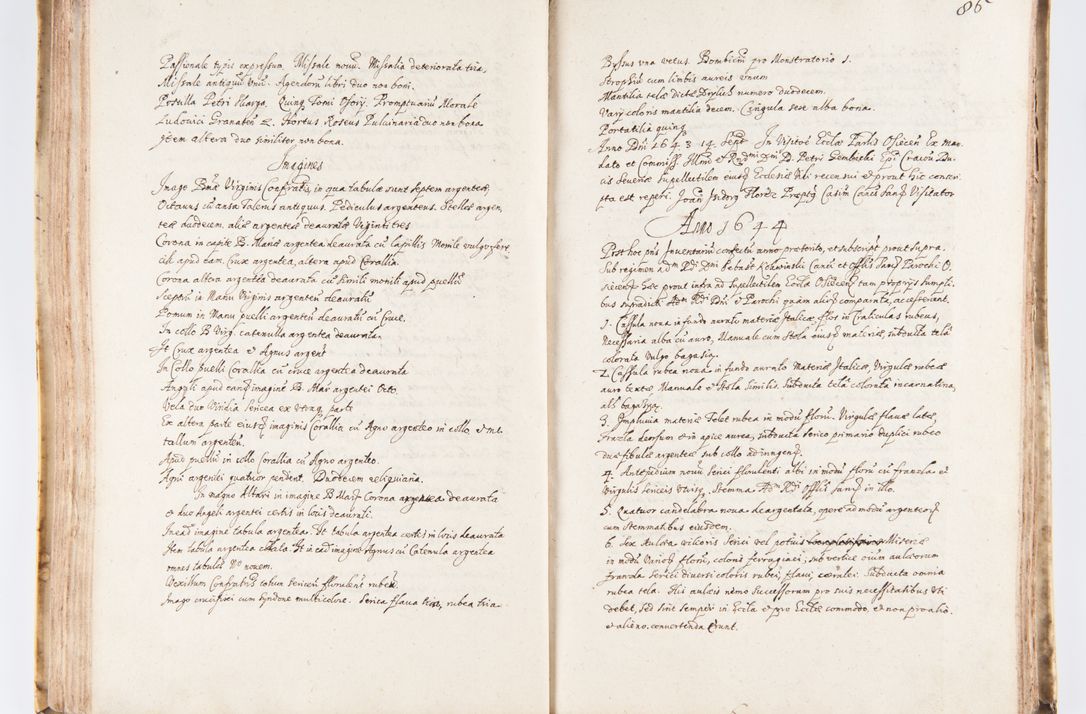 Passionale typis expressum. Missale novũ. Missalia deteriorata tria,
Missale antiquũ unũ. Agendorũ libri duo non boni.
Postilla Petri Skarga. Quinq Tomi Osorÿ. Promptuariũ Morale
Ludovici Granaten Hortus Roseus Pulvinaria duo non bona
Item altera duo similiter non bona.
Imagines
Imago Virginis Confratis, in qua tabulæ sunt septem argenteæ,
Octauus cũ ansa Talerus antiquus. Pediculus argenteus. Stellæ argen,
teæ duodecem. aliæ argenteæ deauratæ Viginti tres
Corona in capite B. Mariæ argentea deaurata cũ lapillis Monile vulgo
apud eam. Crux argentea, altera apud Corallia.
Corona altera argentea deaurata cũ simili monili apud puellũ
Sceptrũ in Manu Virginis argenteũ deauratũ
Pomum in Manu puelli argenteũ deauratũ cũ Cruce.
In collo B Virg. catenulla argentea deaurata.
It Crux argentea & Agnus argent
In Collo puelli Corallia cũ cruce argentea deaurata
Angeli apud eandẽ imaginẽ B. Mar argentei Octo.
Vela duo Viridia sericea ex utraq parte
Ex altera parte eiusdẽ imaginis Corallia cũ Agno argenteo in collo, & me,
tallum argenteũ.
Apud puellũ in collo Corallia cũ Agno argenteo.
Agni argentei quatuor pendent. Duodecem reliquiaria.
In magno Altari in imagine B Mariæ Corona argentea deaurata
& duo Angeli argentei certis in locis deaurati.
In eadẽ imagine tabula argentea. It tabula argentea certis in locis deaurata
Item tabula argentea It in eadẽ imagine Agnus cũ Catenula argentea
omnes tabulæ No novem.
Vexillum Confratrũ totum sericeũ florulent rubeũ.
Imago crucifixi cum syndone multicolore. Serica flaua tria, rubea tria
86
Byssus una vetus. Bombiciũ pro Monstratorio 1.
Strophiũ cum limbis aureis unum
Mantilia telæ dictæ Drylich numero duodecem.
Varÿ coloris mantilia decem. Cingula sex alba bona.
Portatilia quinq
Anno Dni 1643 14 Sept In Visitõe Eccliæ Parlis Osiecen Ex Man,
dato et Commiss Illmi et Rndmi Dni D. Petri Gembicki Epi Cracou Du,
cis Seueriæ Supellectilem eiusq Ecclesiæ Vidi recensui & prout hic conscri
pta est reperi. Joañ Isidorq
Anno 1644
Post hoc pns Inuentariũ confectũ anno præterito, et subscript prout supra.
Sub regimen adm Rdi Dni Sebast Canci et Offlis Parochi O,
siecen Hæc prout infra ad Supellectilem Eccliæ Osiecen tam proprijs sumpti,
bus supradicti Adm Rdi Dni & Parochi quàm aliorq comparata, accesserunt.
1. Casula noua in fundo aurato materiæ Italicæ, flos in Craticulas rubeus,
Necessaria alba cũ auro, Manuale cum Stola eiusdẽ materiæ, subducta telâ
colorata vulgo bagasia.
2. Cassula rubea noua in fundo aurato Materiæ Italicæ, Virgulæ rubeæ
auro textæ Manuale & Stola similis. Subducta telâ coloratâ incarnatina,
als bagasiya.
3. Impluuia materiæ Tolet rubea in modũ florũ. Virgulæ flauæ latæ,
Frandzla deorsum & in apice aurea, subducta serico primario duplici rubeo
duæ fibulæ argenteæ sub collo
4. Antipedium nouũ serici florulenti albi in modũ florũ cũ frandzla &
Virgulis sericeis Stemma Adm Rdi Offlis in illo.
5. Quatuor candelabra noua deargentata, opere ad modũ argenteorq
cum Stemmatibus eiusdem.
6. Sex Aulæa vilioris serici vel potius Miseriæ
in modũ Variorq florũ, coloris ferruginei, sub vertice oium aulæorum
franzla serici diuersi coloris rubei, flaui, cærulei. Subducta omnia
rubea tela. His aulæis nemo Successorum pro suis necessitatibus Uti
debet, sed sint semper in Eccla & pro Ecclæ commodo, & non pro alio
& alieno conuertenda erunt.